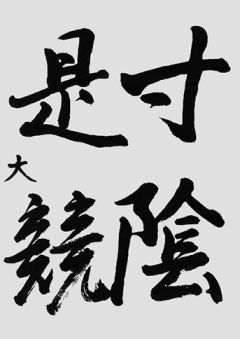 寸陰
是競
大